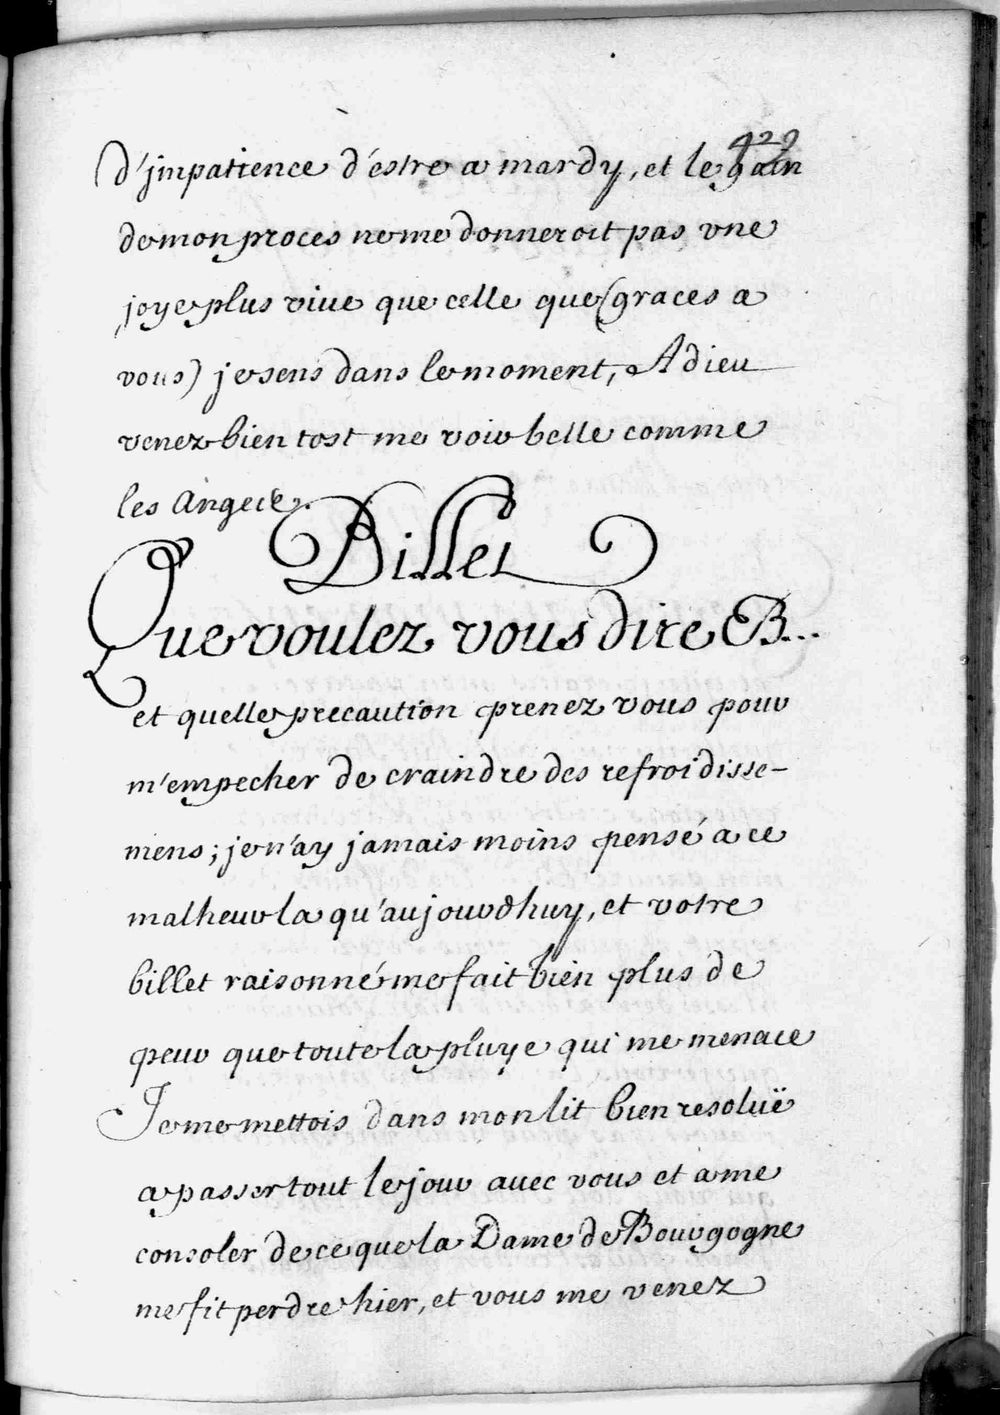 429
d'jmpatience d'éstre a mardy, et le gain
de mon proces ne me donneroit pas vne
joye plus viue que celle que (graces a
vous) je sens dans le moment, Adieu
venez bien tost me voir belle comme
les Anges.
Billet
Que voulez vous dire B...
et quelle precaution prenez vous pour
m'empecher de craindre des refroidisse-
mens; je n'ay jamais moins pensé a ce
malheur la qu'aujourdhuy, et votre
billet raisonné me fait bien plus de
peur que toute la pluye qui me menace
Je me mettois dans mon lit bien resoluë
a passer tout le jour auec vous et a me
consoler de ce que la Dame de Bourgogne
me fit perdre hier, et vous me venez